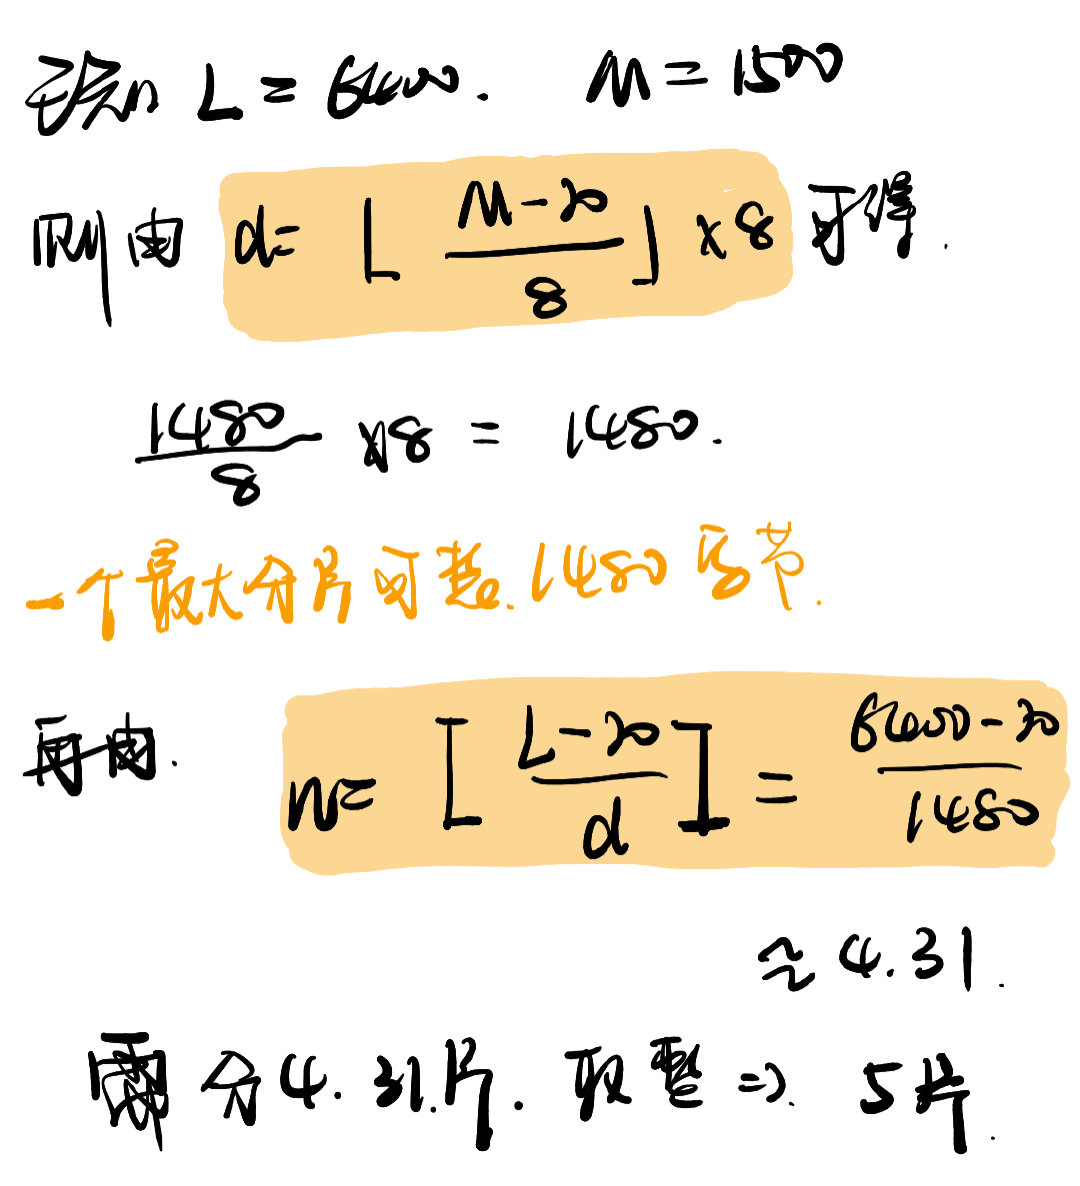 已知 L = 6400. M = 1500
则由 d= ⌊ (M-20)/8 ⌋ ×8 可得.
1480/8 ×8 = 1480.
一个最大分片可装.1480字节.
再由. n= [ (L-20)/d ] = (6400-20)/1480
≈ 4.31.
需分4.31.片. 取整 => 5片.